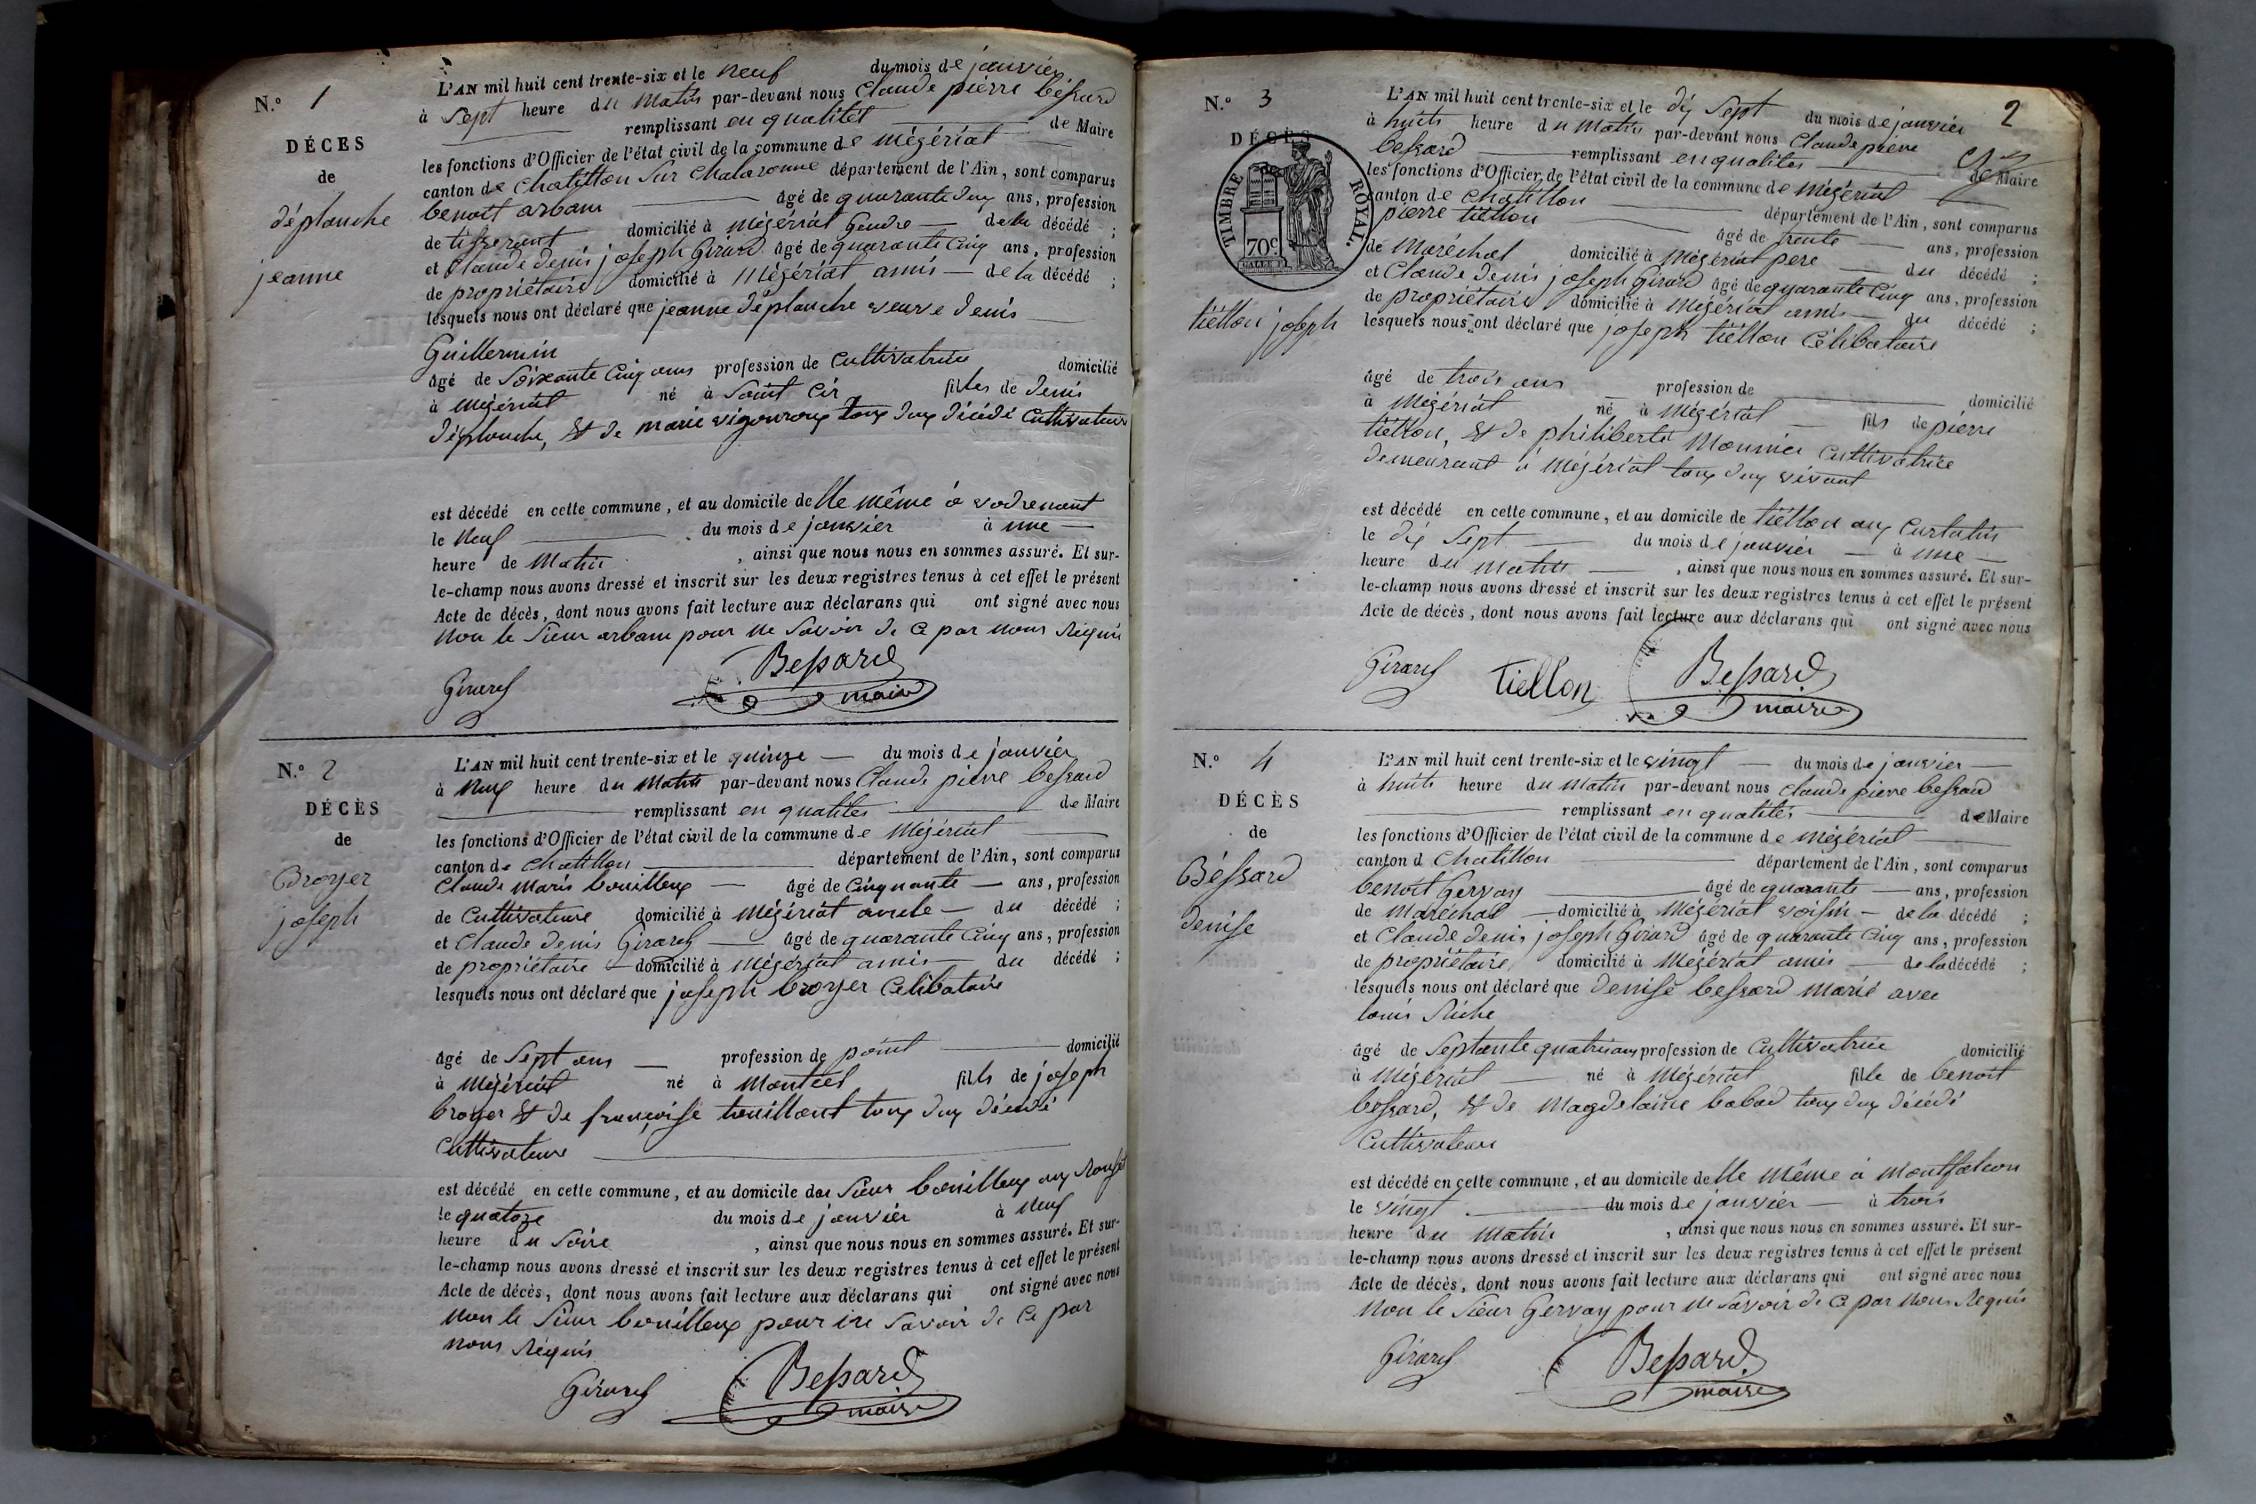 N.º 1
DÉCES
de
déplanche
jeanne
L'AN mil huit cent trente-six et le neuf du mois de janvier
à sept heure du matin par-devant nous Claude pierre bessard
remplissant en qualitet de Maire
les fonctions d'Officier de l'état civil de la commune de mézériat
canton de chatillon sur chalaronne département de l'Ain, sont comparus
benoit arbam âgé de quarante dux ans, profession
de tisserant domicilié à mézériat Gendre de la décédé ;
et Claude denis joseph Girard âgé de quarante cinq ans, profession
de propriétaire domicilié à mézériat amis de la décédé ;
lesquels nous ont déclaré que jeanne déplanche veuve denis
Guillermin
âgé de soixante cinq ans profession de cultivatrice domicilié
à mézériat né à saint cir filles de denis
déplanche, et de marie vigouroux tous dux décédé cultivateur
est décédé en cette commune, et au domicile de lle même à vodrenant
le neuf du mois de janvier à une
heure de matin , ainsi que nous nous en sommes assuré. Et sur-
le-champ nous avons dressé et inscrit sur les deux registres tenus à cet effet le présent
Acte de décès, dont nous avons fait lecture aux déclarans qui ont signé avec nous
non le sieur arbam pour ne savoir de ce par nous réquis
Girard Bessard
maire
N.º 2
DÉCÈS
de
Broyer
joseph
L'AN mil huit cent trente-six et le quinze du mois de janvier
à neuf heure du matin par-devant nous Claude pierre bessard
remplissant en qualites de Maire
les fonctions d'Officier de l'état civil de la commune de mézériat
canton de chatillon département de l'Ain, sont comparus
Claude marie bouilloux âgé de cinquante ans, profession
de cultivateur domicilié à mézériat oncle du décédé ;
et Claude denis Girard âgé de quarante cinq ans, profession
de propriétaire domicilié à mézériat amis du décédé ;
lesquels nous ont déclaré que joseph broyer célibataire
âgé de sept ans profession de point domicilié
à mézériat né à montcet fils de joseph
broyer et de françoise bouilloux tous dux décédé
cultivateur
est décédé en cette commune, et au domicile de sieur bouilloux aux
le quatoze du mois de janvier à neuf
heure du soire , ainsi que nous nous en sommes assuré. Et sur-
le-champ nous avons dressé et inscrit sur les deux registres tenus à cet effet le présent
Acte de décès, dont nous avons fait lecture aux déclarans qui ont signé avec nous
non le sieur bouilloux pour ne savoir de ce par
nous réquis
Girard Bessard
maire
2
N.º 3
DÉCÈS
TIMBRE ROYAL.
70c.
tiellon joseph
L'AN mil huit cent trente-six et le dix sept du mois de janvier
à huits heure du matin par-devant nous Claude pierre
bessard remplissant en qualites de Maire
les fonctions d'Officier de l'état civil de la commune de mézériat
canton de chatillon département de l'Ain, sont comparus
pierre tiellon âgé de trente ans, profession
de maréchal domicilié à mézériat pere du décédé ;
et Claude denis joseph Girard âgé de quarante cinq ans, profession
de propriétaire domicilié à mézériat amis du décédé ;
lesquels nous ont déclaré que joseph tiellon célibataire
âgé de trois ans profession de domicilié
à mézériat né à mézériat fils de pierre
tiellon, et de philiberte monnier cultivatrice
demeurant à mézériat tous dux vivant
est décédé en cette commune, et au domicile de tiellon aux curtatin
le dix sept du mois de janvier à une
heure du matin , ainsi que nous nous en sommes assuré. Et sur-
le-champ nous avons dressé et inscrit sur les deux registres tenus à cet effet le présent
Acte de décès, dont nous avons fait lecture aux déclarans qui ont signé avec nous
Girard tiellon Bessard
maire
N.º 4
DÉCÈS
de
Béssard
denise
L'AN mil huit cent trente-six et le vingt du mois de janvier
à huits heure du matin par-devant nous claude pierre bessard
remplissant en qualités de Maire
les fonctions d'Officier de l'état civil de la commune de mézériat
canton d chatillon département de l'Ain, sont comparus
benoit Gervay âgé de quarante ans, profession
de maréchal domicilié à mézériat voisin de la décédé ;
et Claude denis joseph Girard âgé de quarante cinq ans, profession
de propriétaire domicilié à mézériat amis de la décédé ;
lesquels nous ont déclaré que denise bessard marié avec
louis Riche
âgé de septante quatre ans profession de cultivatrice domicilié
à mézériat né à mézériat fille de benoit
bessard, et de magdelaine babad tous dux décédé
cultivateur
est décédé en cette commune, et au domicile de lle même à montfalcon
le vingt du mois de janvier à trois
heure du matin , ainsi que nous nous en sommes assuré. Et sur-
le-champ nous avons dressé et inscrit sur les deux registres tenus à cet effet le présent
Acte de décès, dont nous avons fait lecture aux déclarans qui ont signé avec nous
non le sieur Gervay pour ne savoir de ce par nous réquis
Girard Bessard
maire